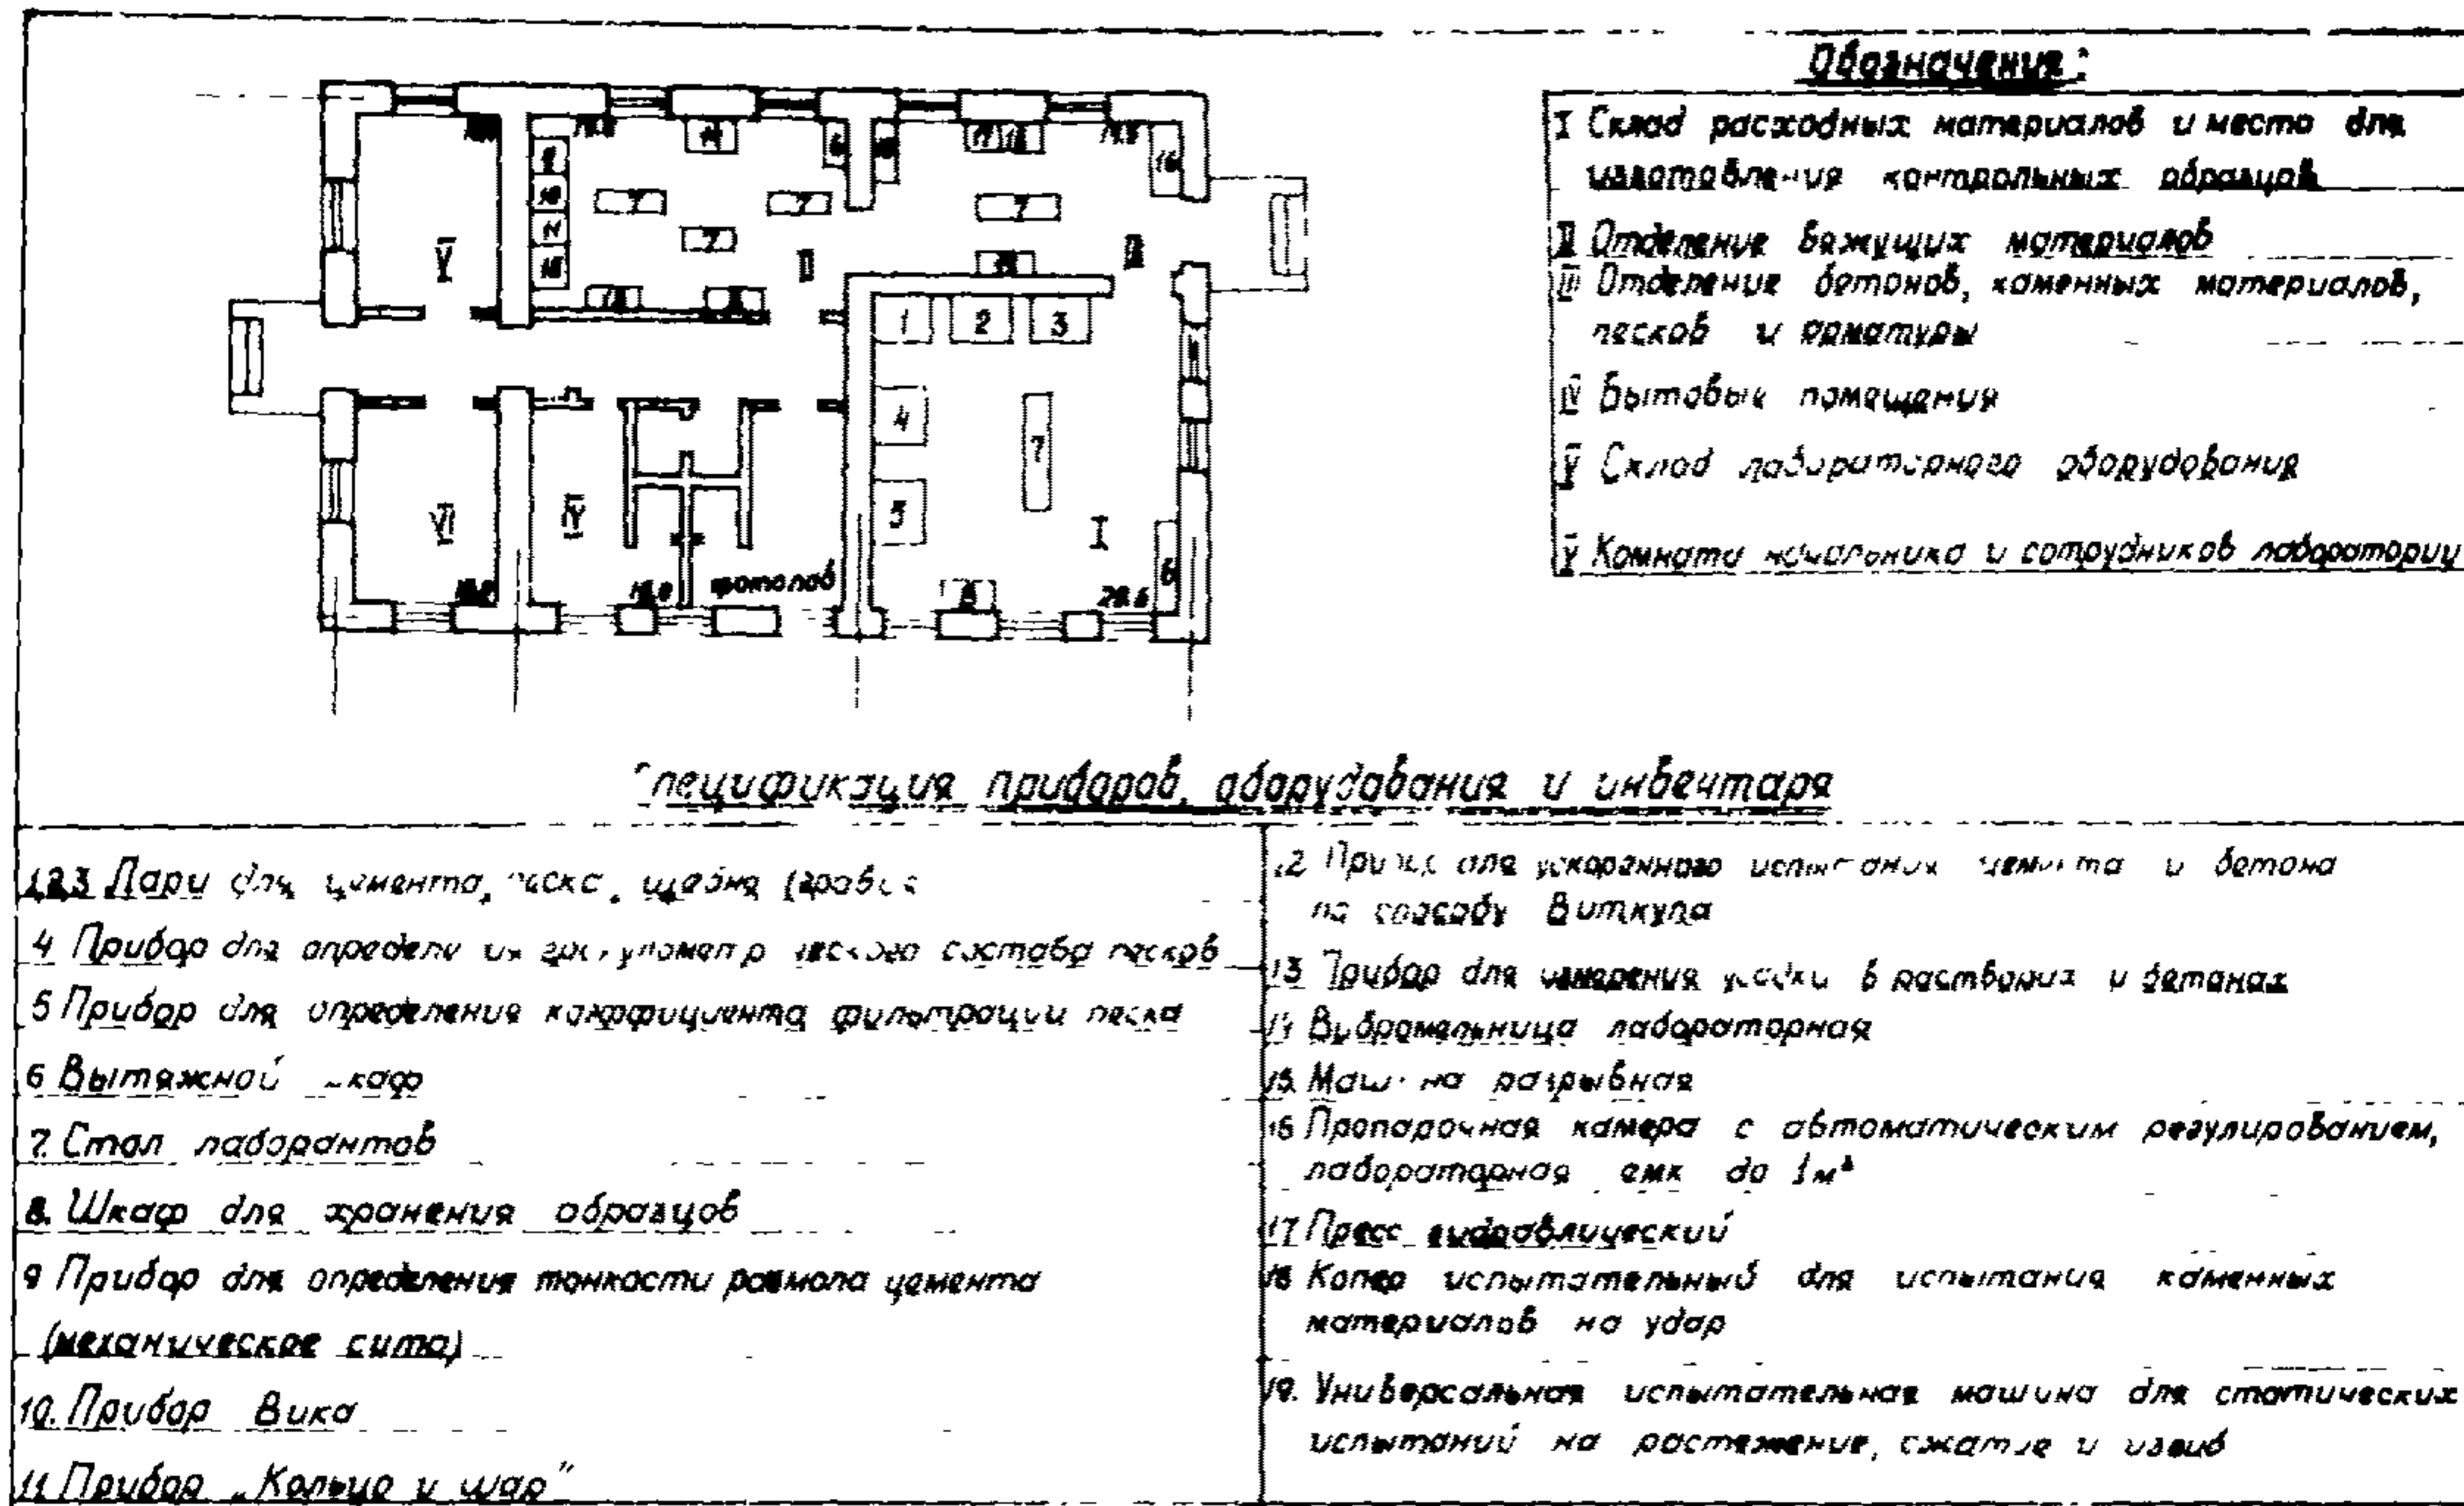 Обозначения:
I Склад расходных материалов и место для
изготовления контрольных образцов
II Отделение вяжущих материалов
III Отделение бетонов, каменных материалов,
песков и арматуры
IV Бытовые помещения
V Склад лабораторного оборудования
V Комната начальника и сотрудников лаборатории
14
10
V
7
7
7
7
II
1
2
3
4
7
5
VI
IV
I
фотолаб
8
28.6
Спецификация приборов, оборудования и инвентаря
1,2,3 Лари для цемента, песка, щебня (гравия
4 Прибор для определения гранулометрического состава песков
5 Прибор для определения коэффициента фильтрации песка
6 Вытяжной шкаф
7. Стол лаборантов
8. Шкаф для хранения образцов
9 Прибор для определения тонкости размола цемента
(механическое сито)
10. Прибор Вика
11 Прибор „Кольцо и шар"
12 для ускоренного испытания цемента и бетона
по способу Виткупа
13 Прибор для измерения усадки в растворах и бетонах
14 Вибромельница лабораторная
15. Машина разрывная
16 Пропарочная камера с автоматическим регулированием,
лабораторная емк до 1м³
17 Пресс гидравлический
18 Копер испытательный для испытания каменных
материалов на удар
19. Универсальная испытательная машина для статических
испытаний на растяжение, сжатие и изгиб